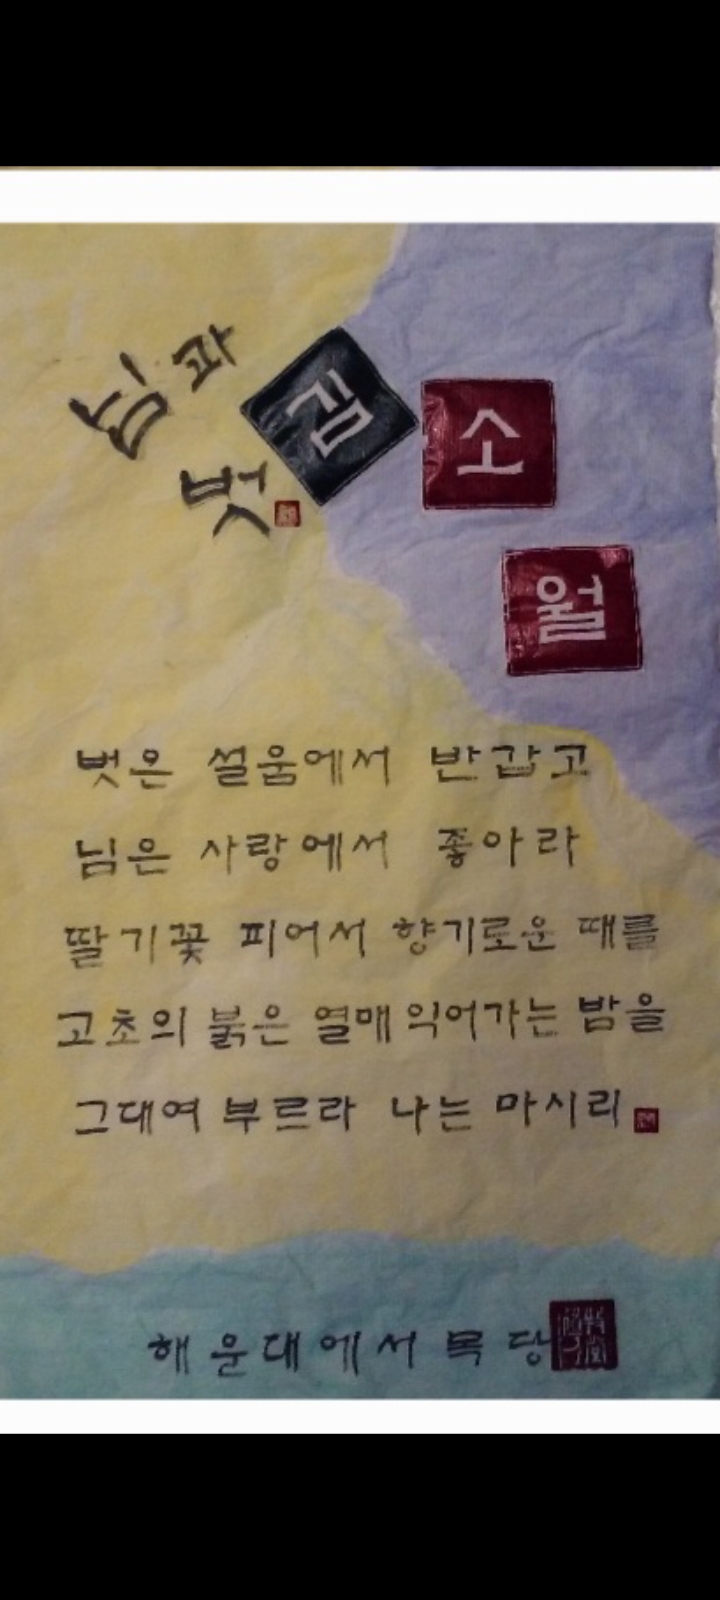 님과
벗
김
소
월
벗은 설움에서 반갑고
님은 사랑에서 좋아라
딸기꽃 피어서 향기로운 때를
고초의 붉은 열매 익어가는 밤을
그대여 부르라 나는 마시리
해운대에서 목당